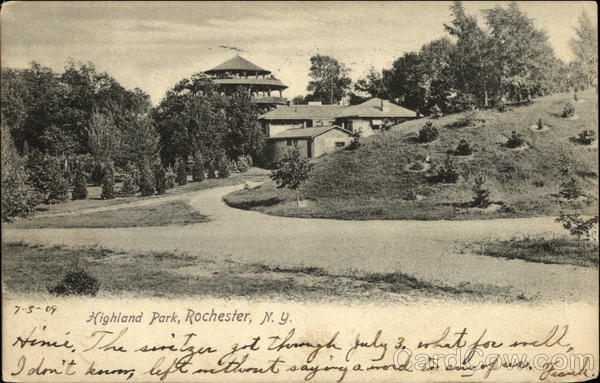 7-5-09
Highland Park, Rochester, N. Y.
Hinie. The switzer got through July 3, what for well,
I don't know, left without saying a word to any of us. Frank.
CardCow.com